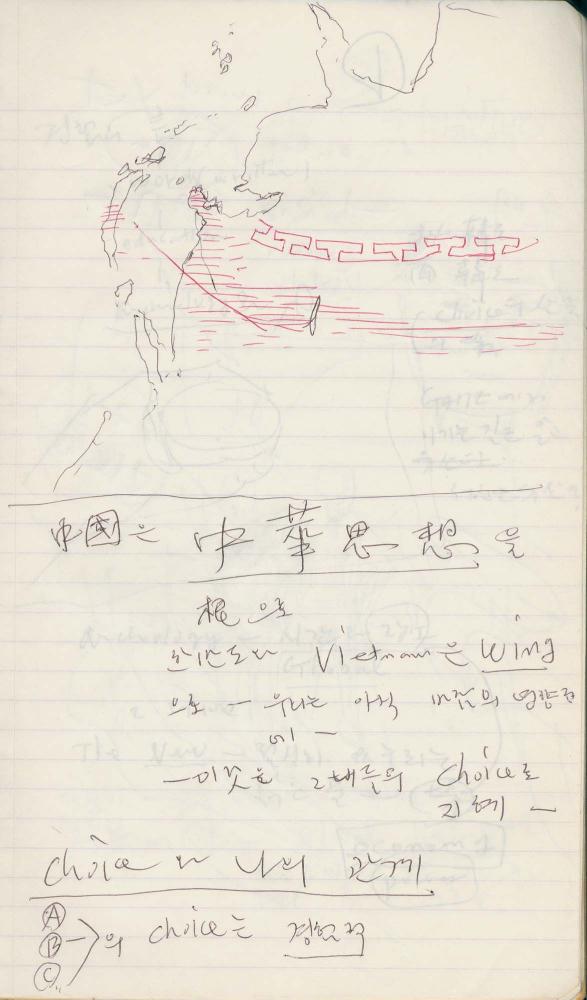 中國은 中華思想을
根으로
한반도와 Vietnam은 Wing
으로 — 우리는 아직
에 —
— 이것은 그때들의 choice로
지혜 —
choice와 나의 관계
Ⓐ
Ⓑ의 choice는 경험적
Ⓒ